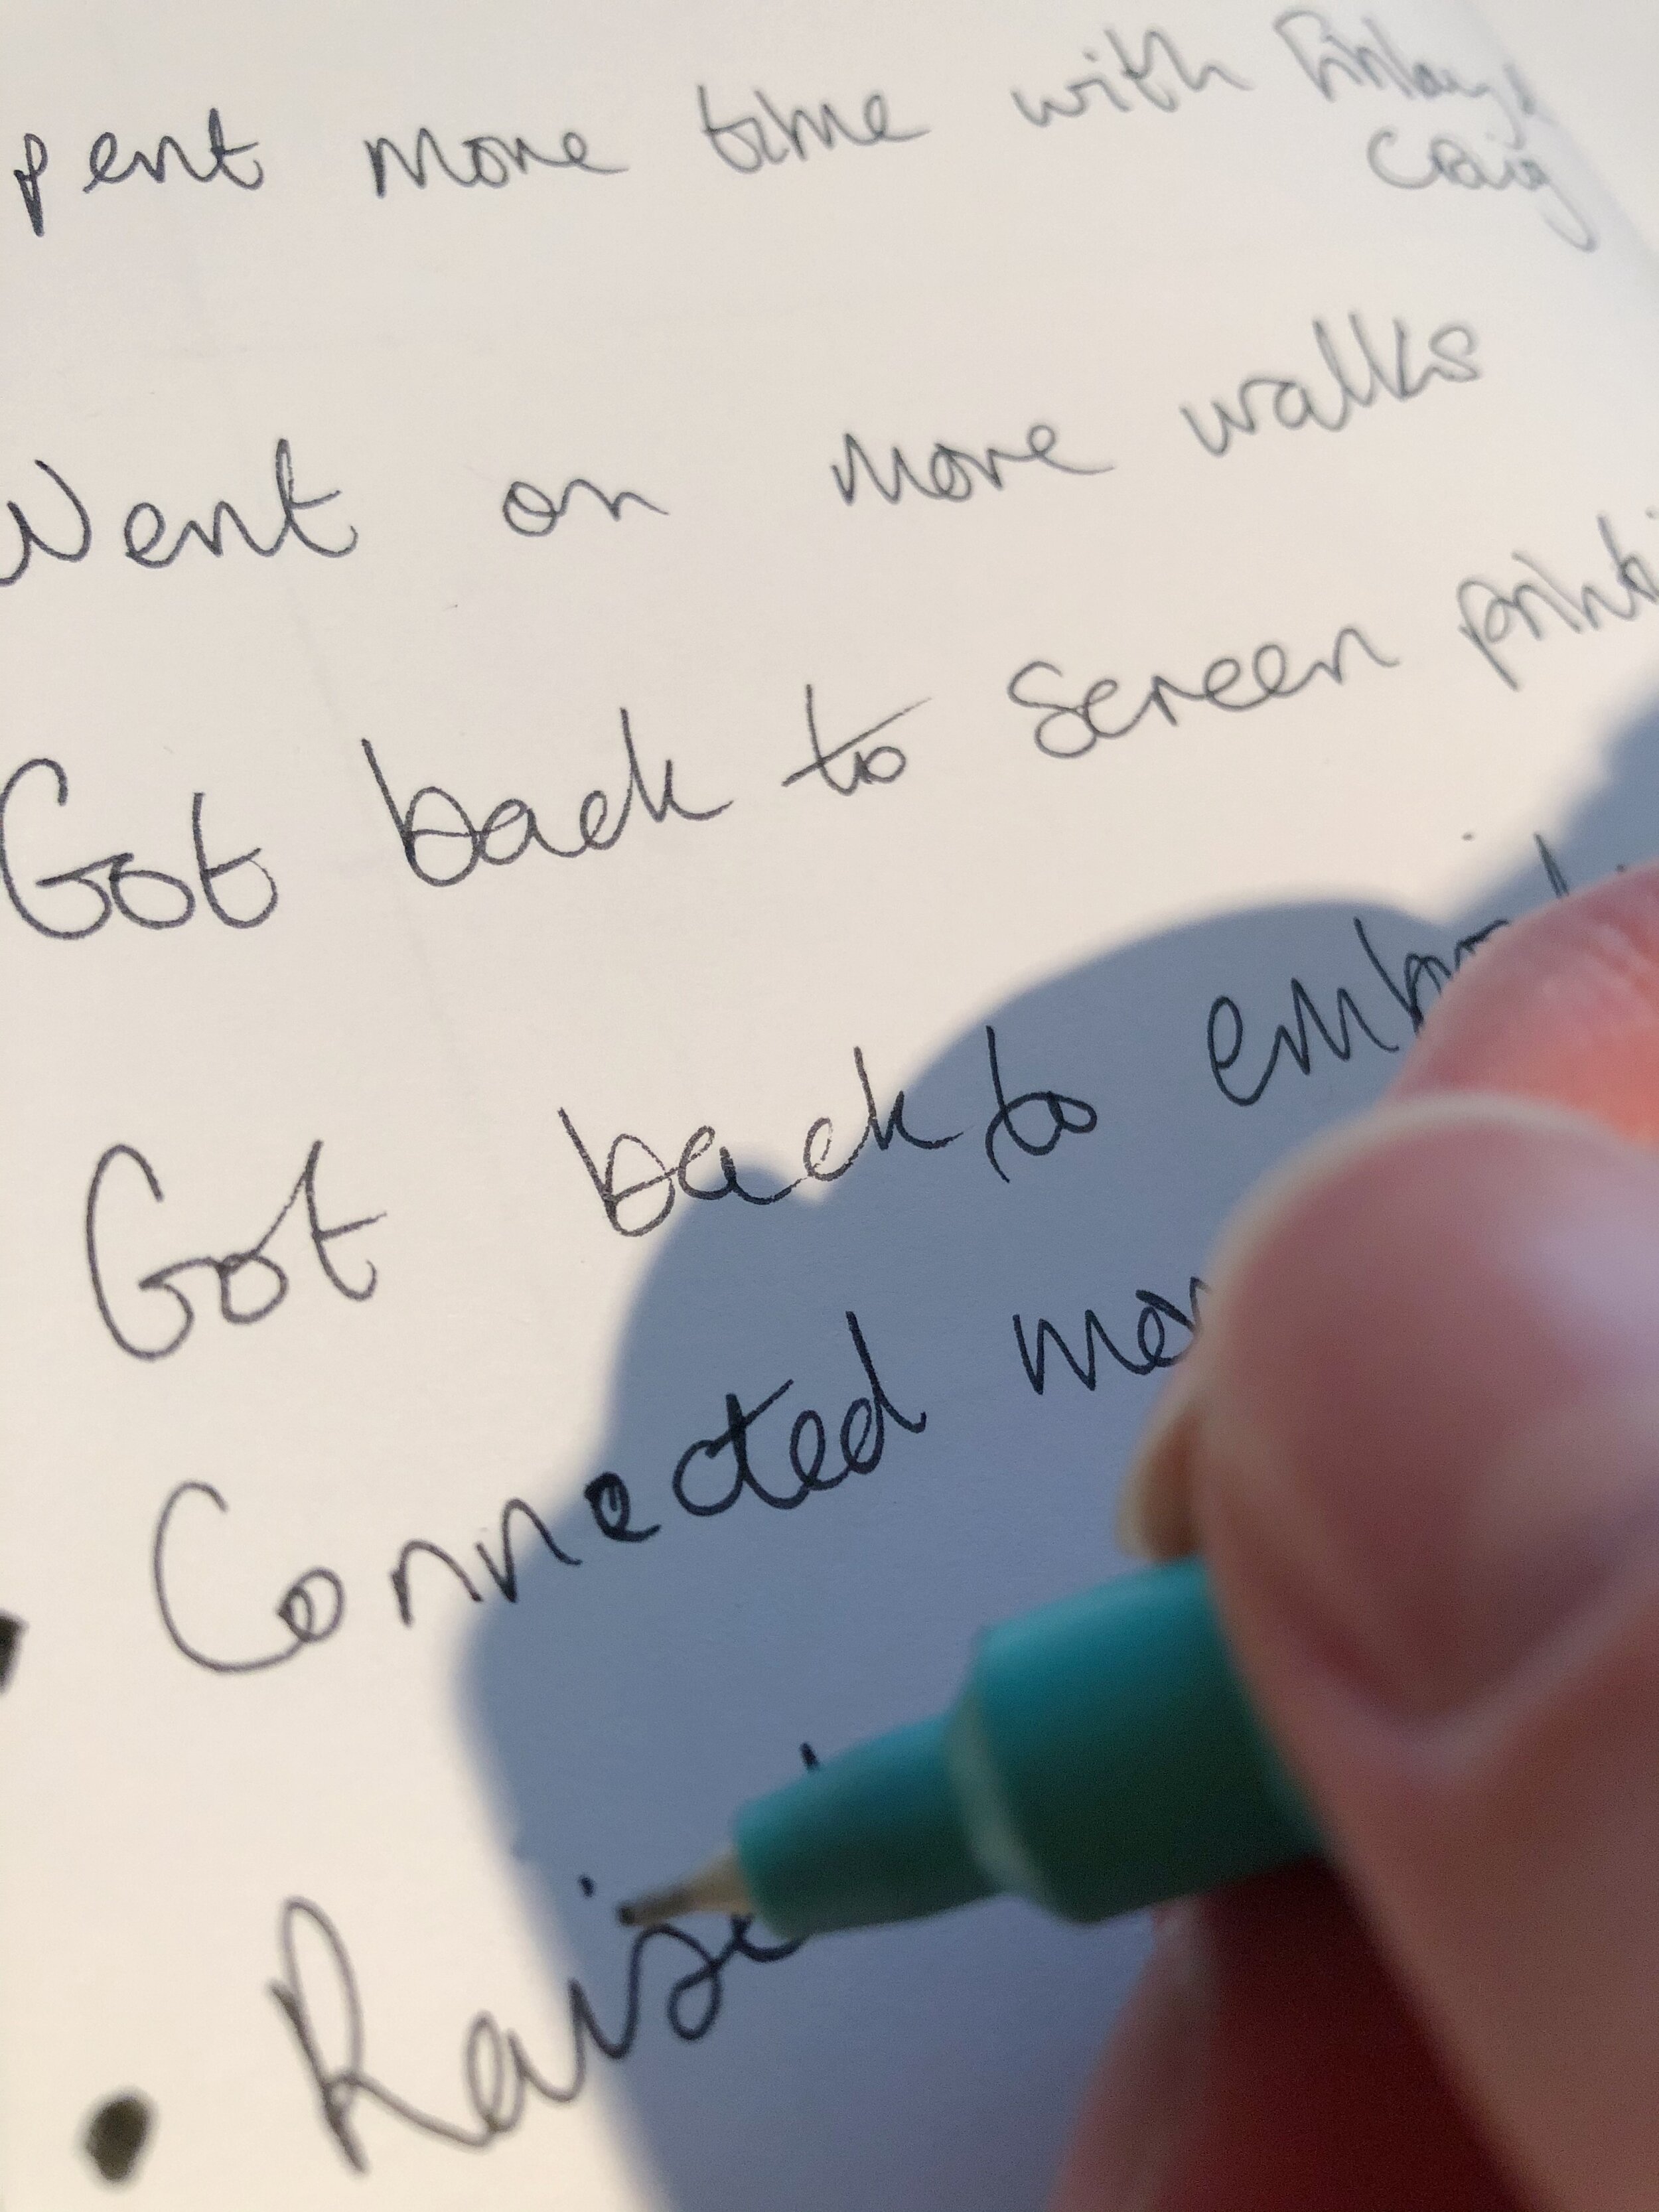 pent more time with Finlay &
Craig
Went on more walks
Got back to screen printi
Got back to embroi
Connected mor
Raised